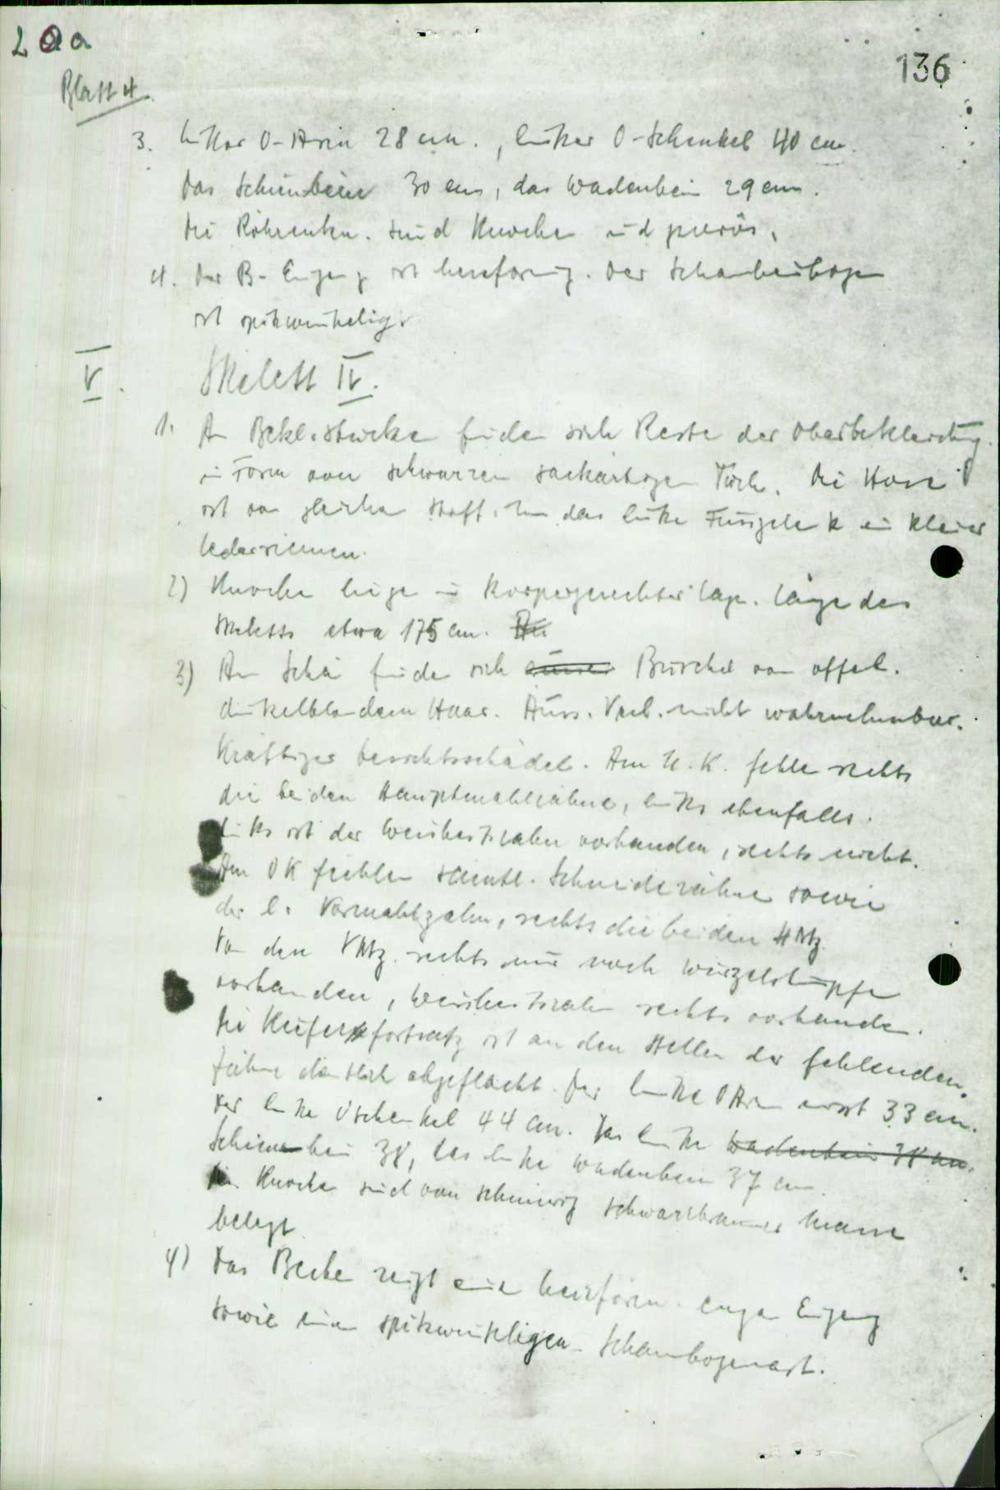 20a
136
Blatt 4
3. linker O-Arm 28 cm., linker O-Schenkel 40 cm.
Das Schienbein 30 cm, das Wadenbein 29 cm.
Die Röhrenkn. sind Knochen und porös.
4. Der B-Eingang ist herzförmig. Der Schambeinbogen
ist spitzwinkelig.
V. Skelett IV.
1. An Bekl.stücken finden sich Reste der Oberbekleidung
in Form von schwarzem sackartigen Tuch. Die Hose
ist von gleichem Stoff. Um das linke Fussgelenk ein kleiner
Lederriemen.
2) Knochen liegen in körpergerechter Lage. Länge des
Skeletts etwa 175 cm.
3) Am Schä finden sich Büschel von
dunkelblondem Haar. Äuss. Verl. nicht wahrnehmbar.
Kräftiger Gesichtsschädel. Am U.K. fehlen rechts
die beiden Hauptmahlzähne, links ebenfalls.
Links ist der Weisheitszahn vorhanden, rechts nicht.
Am OK fehlen sämtl. Schneidezähne sowie
der l. Vormahlzahn, rechts die beiden HMz.
Von den VMz. rechts nur noch Wurzelstümpfe
vorhanden, Weisheitszahn rechts vorhanden.
Die Kieferfortsatz ist an den Stellen der fehlenden
Zähne deutlich abgeflacht. Der linke OArm misst 33 cm.
Der linke OSchenkel 44 cm. Das linke Wadenbein 38 cm.
Schienbein 38, das linke Wadenbein 37 cm.
Die Knochen sind von schmierig schwarzbrauner Masse
belegt.
4) Das Becken zeigt eine herzförm. engen Eingang
sowie einen spitzwinkligen Schambogenast.